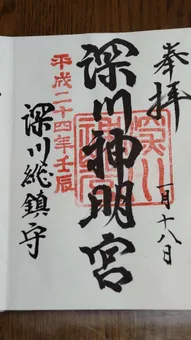 奉拝
一月十八日
深川神明宮
平成二十四年壬辰
深川総鎮守